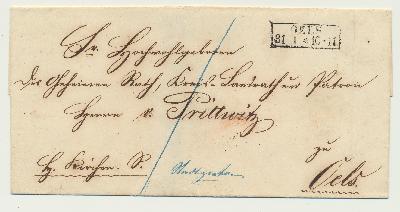 OELS
31 1 * 10-11
Sr. Hochwohlgeboren
Des Geheimen Rath, Kreis-Landrath und Patron
Herrn v. Prittwitz
zu
Hj. Kirchen. S.
Oels.